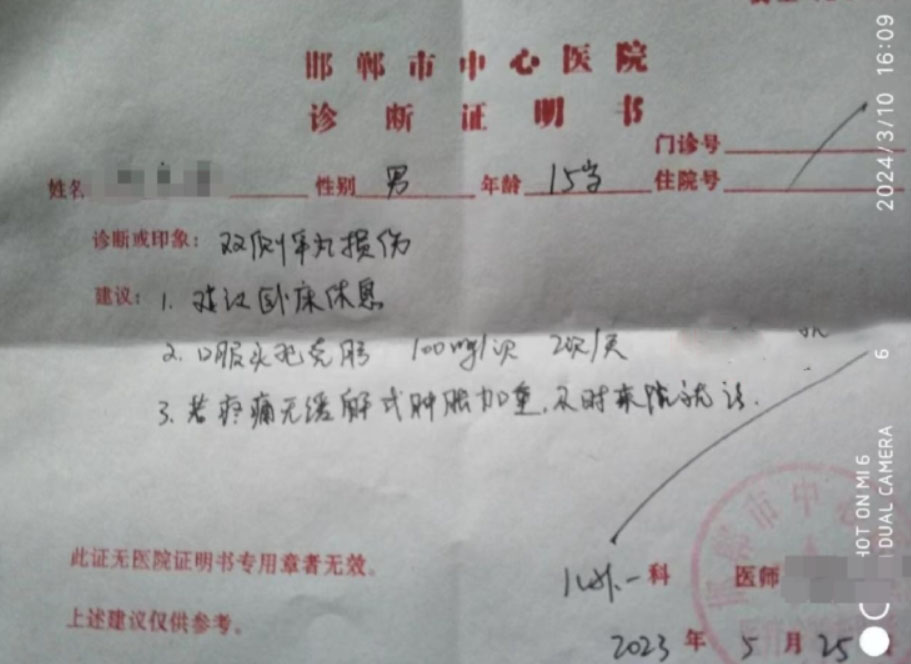 邯郸市中心医院
诊断证明书
门诊号
姓名 性别 男 年龄 15岁 住院号
诊断或印象：双侧睾丸损伤
建议：1. 建议卧床休息
2. 口服头孢克肟 100mg/次 2次/天
3. 若疼痛无缓解或肿胀加重，及时来院就诊.
此证无医院证明书专用章者无效。
儿外一科 医师
上述建议仅供参考。
2023年5月25
邯郸市中
2024/3/10 16:09
SHOT ON MI 6
DUAL CAMERA